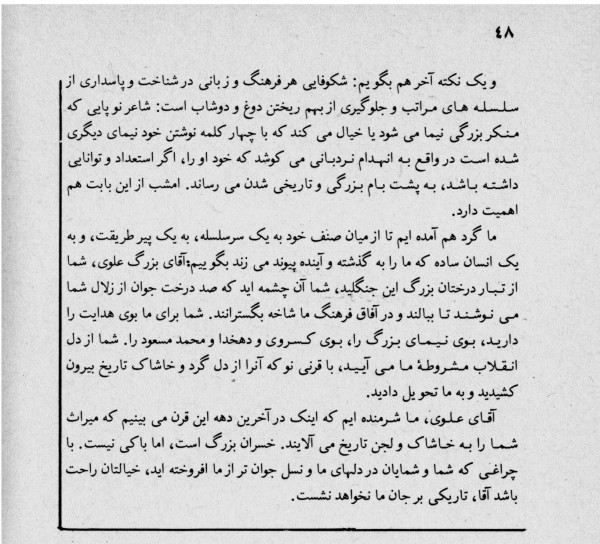 ٤٨
و یک نکته آخر هم بگویم: شکوفایی هر فرهنگ و زبانی در شناخت و پاسداری از
سلسله های مراتب و جلوگیری از بهم ریختن دوغ و دوشاب است: شاعر نوپایی که
منکر بزرگی نیما می شود یا خیال می کند که با چهار کلمه نوشتن خود نیمای دیگری
شده است در واقع به انهدام نردبانی می کوشد که خود او را، اگر استعداد و توانایی
داشته باشد، به پشت بام بزرگی و تاریخی شدن می رساند. امشب از این بابت هم
اهمیت دارد.
ما گرد هم آمده ایم تا از میان صنف خود به یک سرسلسله، به یک پیر طریقت، و به
یک انسان ساده که ما را به گذشته و آینده پیوند می زند بگوییم:آقای بزرگ علوی، شما
از تبار درختان بزرگ این جنگلید، شما آن چشمه اید که صد درخت جوان از زلال شما
می نوشند تا ببالند و در آفاق فرهنگ ما شاخه بگسترانند. شما برای ما بوی هدایت را
دارید، بوی نیمای بزرگ را، بوی کسروی و دهخدا و محمد مسعود را. شما از دل
انقلاب مشروطۀ ما می آیید، با قرنی نو که آنرا از دل گرد و خاشاک تاریخ بیرون
کشیدید و به ما تحویل دادید.
آقای علوی، ما شرمنده ایم که اینک در آخرین دهه این قرن می بینیم که میراث
شما را به خاشاک و لجن تاریخ می آلایند. خسران بزرگ است، اما باکی نیست. با
چراغی که شما و شمایان در دلهای ما و نسل جوان تر از ما افروخته اید، خیالتان راحت
باشد آقا، تاریکی بر جان ما نخواهد نشست.